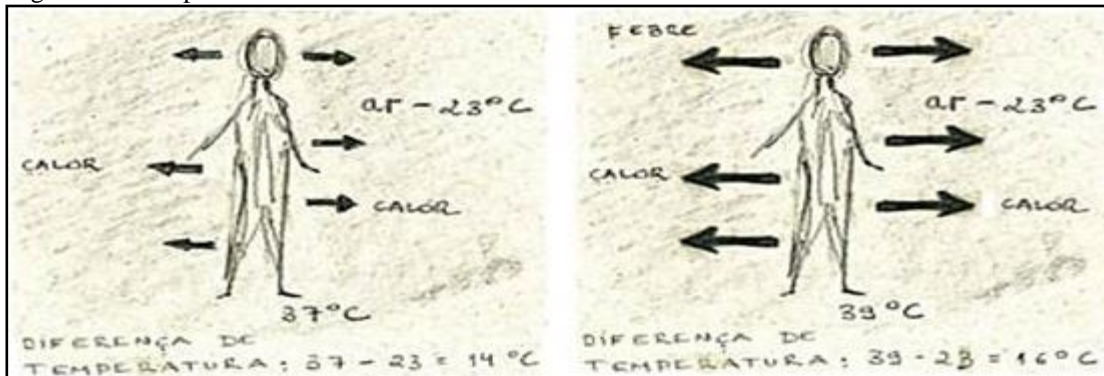 ar - 23°C
CALOR
CALOR
37°C
DIFERENÇA DE
TEMPERATURA: 37 - 23 = 14°C
FEBRE
ar - 23°C
CALOR
CALOR
39°C
DIFERENÇA DE
TEMPERATURA: 39 - 23 = 16°C